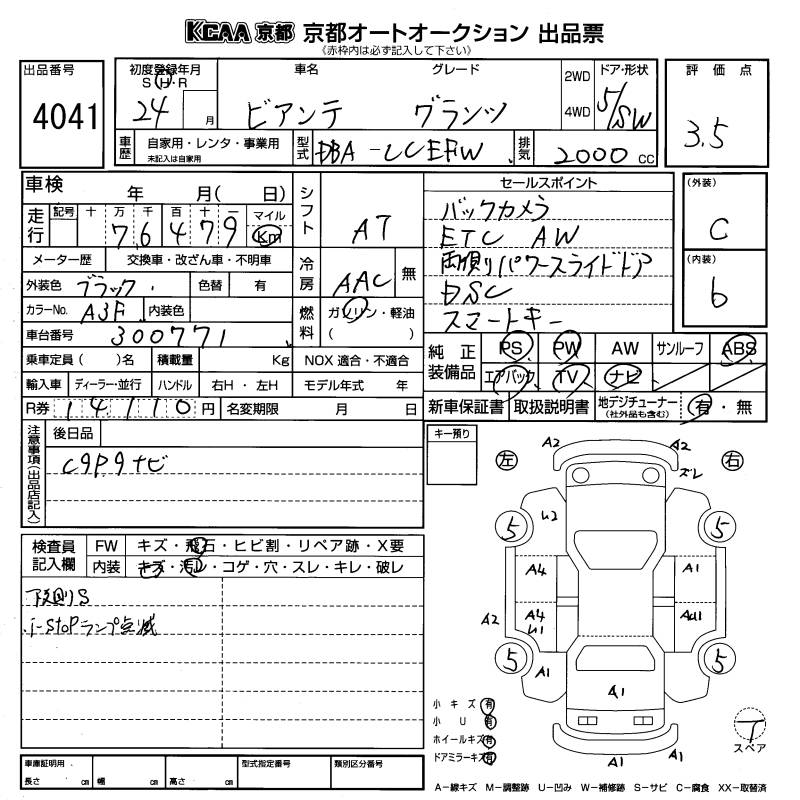 KCAA 京都 京都オートオークション 出品票
《赤枠内は必ず記入して下さい》
出品番号
4041
初度登録年月
S・H・R
24 月
車名 グレード
ビアンテ グランツ
2WD
4WD
ドア・形状
5/SW
評価点
3.5
車歴
自家用・レンタ・事業用
未記入は自家用
型式
DBA-CCEFW
排気
2000 cc
車検 年 月( 日)
走行
記号 十 万 千 百 十 一 マイル
76479 Km
メーター歴 交換車・改ざん車・不明車
外装色 ブラック 色替 有
カラーNo. A3F 内装色
車台番号 300771
乗車定員( )名 積載量 Kg NOX 適合・不適合
輸入車 ディーラー・並行 ハンドル 右H・左H モデル年式 年
R券 14110 円 名変期限 月 日
シフト AT
冷房 AAC 無
燃料 ガソリン・軽油
( )
セールスポイント
バックカメラ
ETC AW
両側パワースライドドア
DSC
スマートキー
(外装)
C
(内装)
b
純正装備品
PS PW AW サンルーフ ABS
エアバック TV ナビ
新車保証書 取扱説明書 地デジチューナー
(社外品も含む)
有・無
注意事項(出品店記入)
後日品
C9P9ナビ
キー預り
検査員記入欄
FW キズ・飛石・ヒビ割・リペア跡・X要
内装 キズ・汚レ・コゲ・穴・スレ・キレ・破レ
下廻りS
i-stopランプ点滅
左 右
A2 A2
ズレ
5 U2 5
A4 A1
A2 A4 U1 AU1
5 A1 5
A1
A1 A1
小キズ 有
小U 有
ホイールキズ 有
ドアミラーキズ 有
T
スペア
車庫証明用
長さ cm 幅 cm 高さ cm
型式指定番号
類別区分番号
A－線キズ M－調整跡 U－凹み W－補修跡 S－サビ C－腐食 XX－取替済